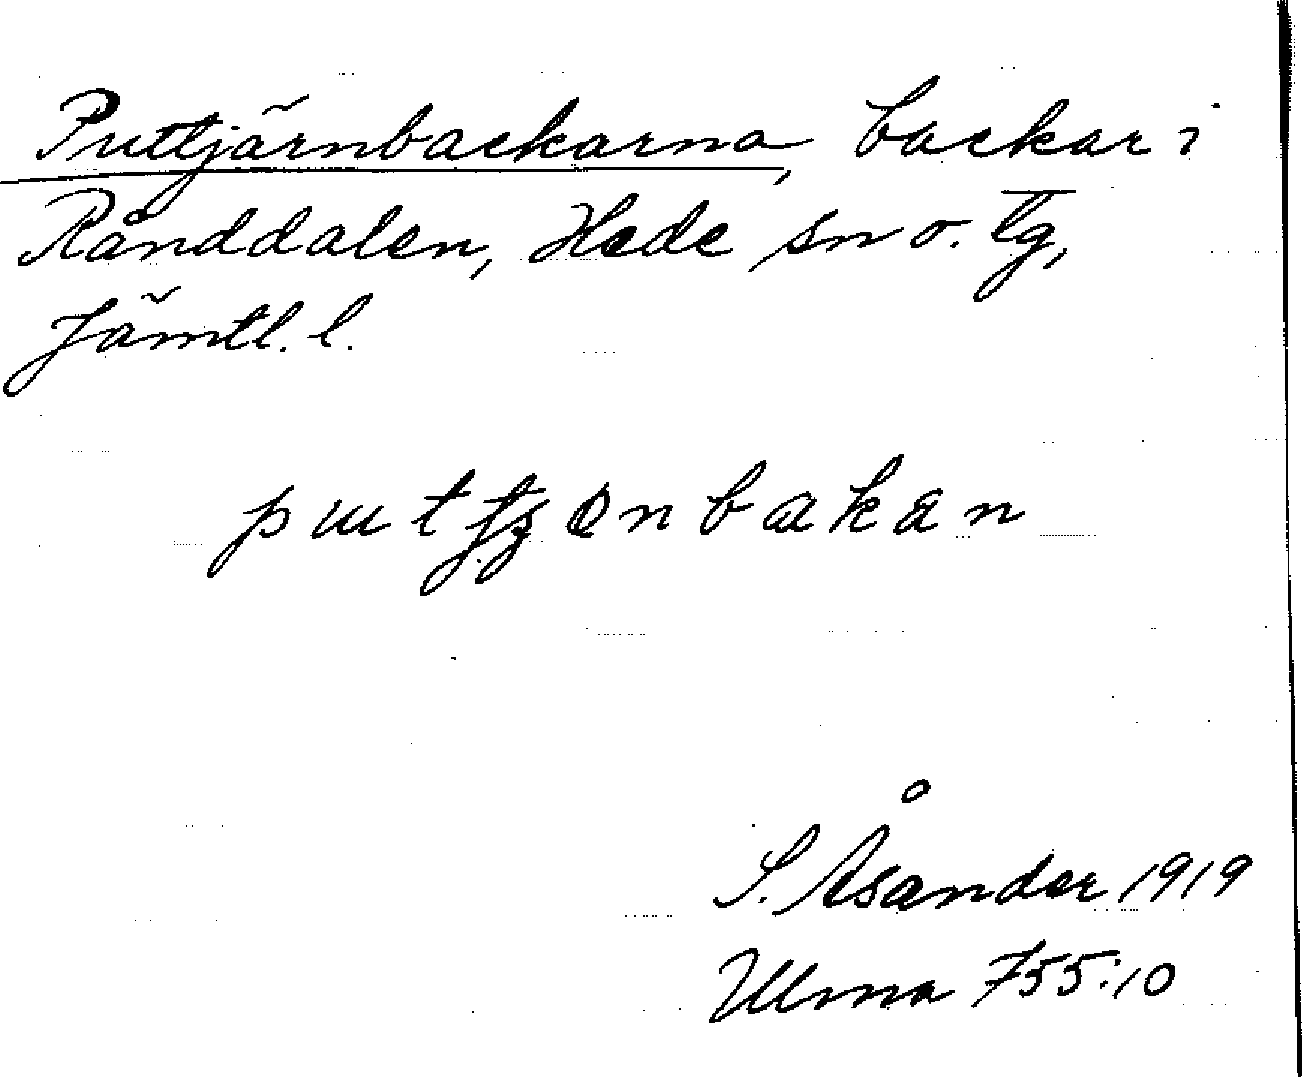 Puttjärnbackarna, backar i
Rånddalen, Hede sn o. tg,
Jämtl. l.
S. Åsander 1919
Ulma 755:10